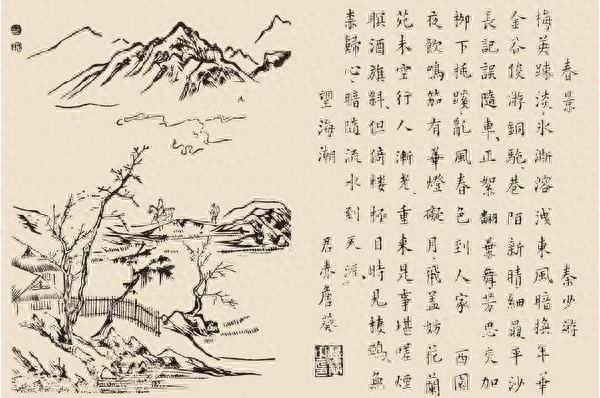 春景 秦少游
梅英踈淡氷澌溶洩東風暗換年華
金谷俊游銅駝巷陌新晴細履平沙
長記誤隨車正絮翻蝶舞芳思交加
柳下桃蹊亂風春色到人家 西園
夜飲鳴笳有華燈礙月飛蓋妨花蘭
苑未空行人漸老重來是事堪嗟煙
暝酒旗斜但倚樓極目時見棲鴉無
柰歸心暗隨流水到天涯
望海潮 君 詹葵